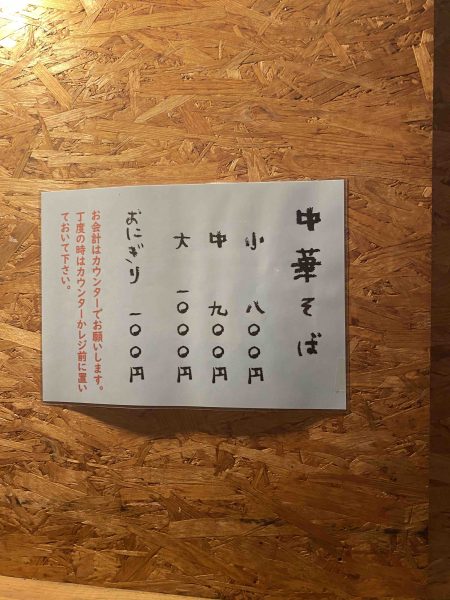 中華そば
小 八〇〇円
中 九〇〇円
大 一〇〇〇円
おにぎり 一〇〇円
お会計はカウンターでお願いします。
丁度の時はカウンターかレジ前に置い
ておいて下さい。